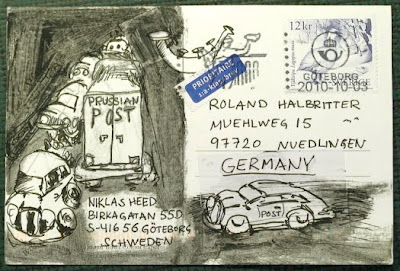 PRUSSIAN
POST
PRIORITAIRE
12kr
GÖTEBORG
2010-10-03
ROLAND HALBRITTER
MUEHLWEG 15
97720 NUEDLINGEN
GERMANY
POST
NIKLAS HEED
BIRKAGATAN 55D
S-416 56 GÖTEBORG
SCHWEDEN